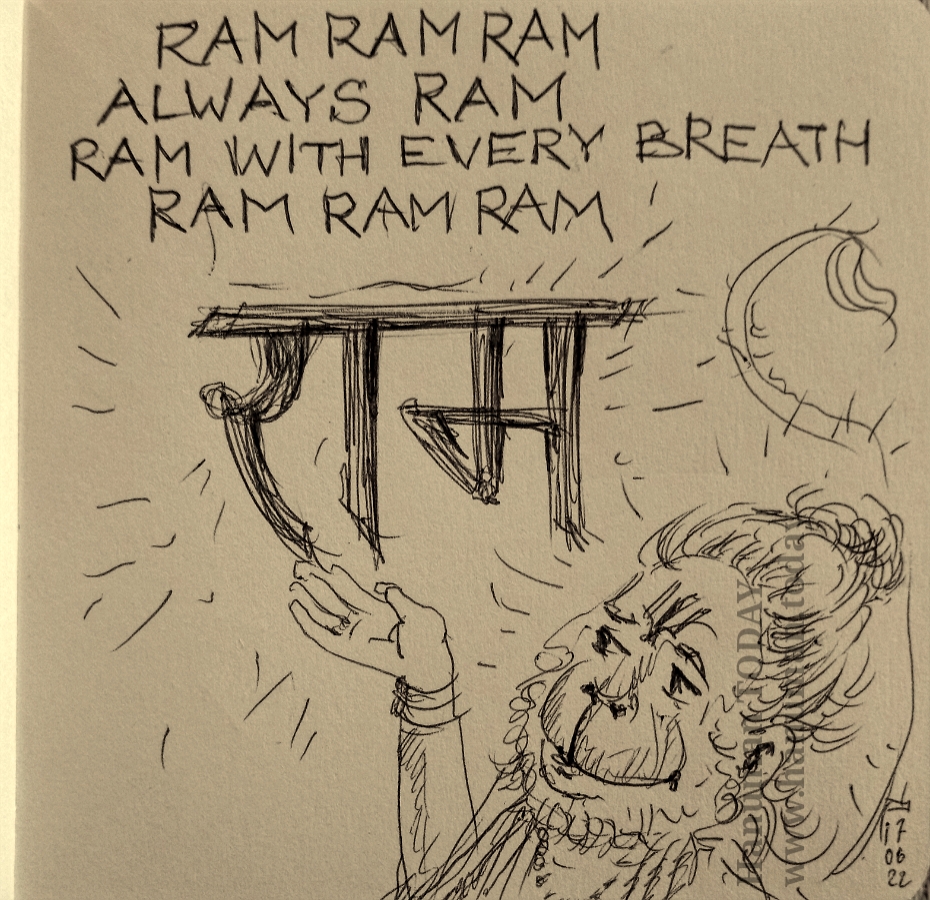 RAM RAM RAM
ALWAYS RAM
RAM WITH EVERY BREATH
RAM RAM RAM
राम
Hanuman TODAY
www.hanuman.today
17
06
22